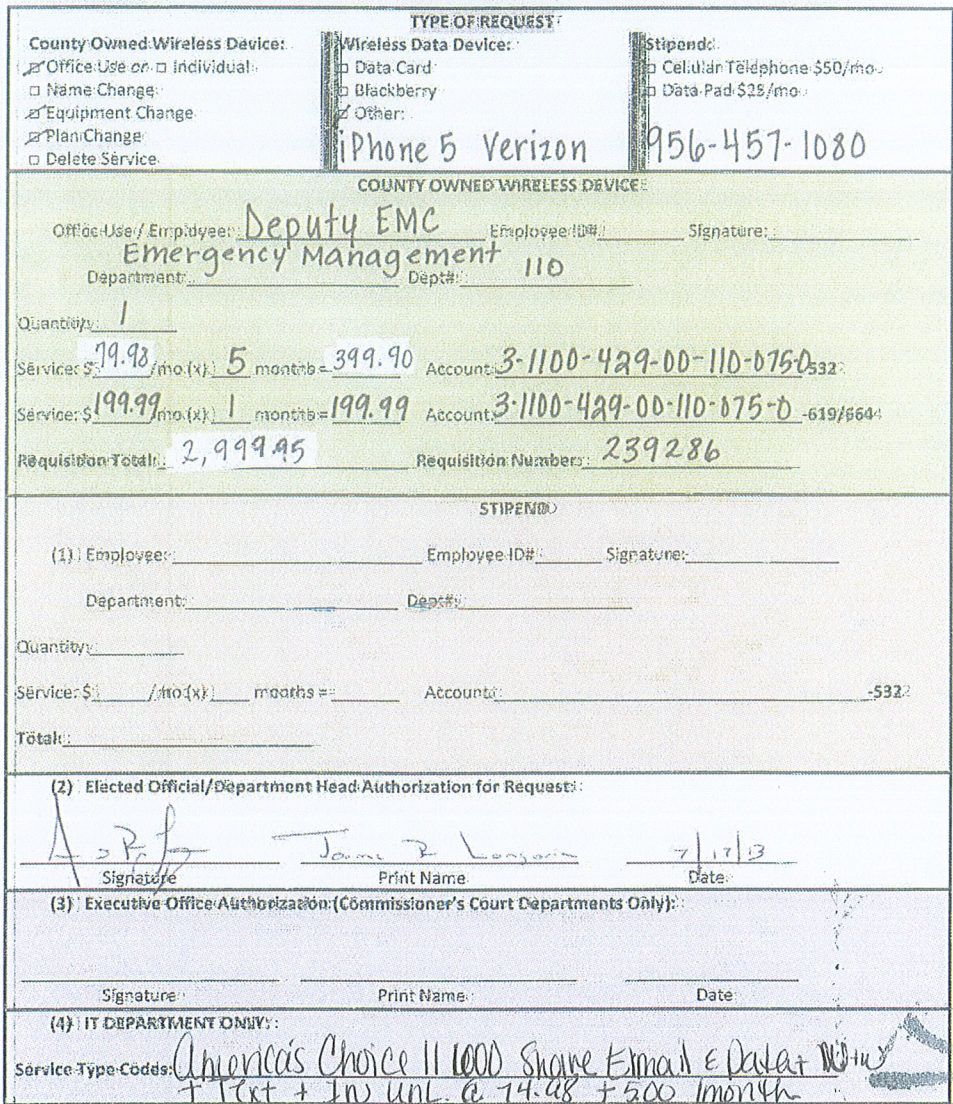 TYPE OF REQUEST
County Owned Wireless Device:
Office Use or □ Individual
□ Name Change
Equipment Change
Plan Change
□ Delete Service
Wireless Data Device:
□ Data Card
□ Blackberry
Other:
iPhone 5 Verizon
Stipend:
□ Cellular Telephone $50/mo
□ Data Pad $25/mo
956-457-1080
COUNTY OWNED WIRELESS DEVICE
Office Use / Employee: Deputy EMC Employee ID#: Signature:
Department: Emergency Management Dept#: 110
Quantity: 1
Service: $ 79.98 /mo (x) 5 months = 399.90 Account: 3-1100-429-00-110-075-0 532
Service: $ 199.99 /mo (x) 1 months = 199.99 Account: 3-1100-429-00-110-075-0 -619/664
Requisition Total: 2,999.95 Requisition Number: 239286
STIPEND
(1) Employee: Employee ID# Signature:
Department: Dept#:
Quantity:
Service: $ /mo (x) months = Account: -532
Total:
(2) Elected Official/Department Head Authorization for Request:
7/17/13
Signature Print Name Date
(3) Executive Office Authorization (Commissioner's Court Departments Only):
Signature Print Name Date
(4) IT DEPARTMENT ONLY:
Service Type Codes: America's Choice II 1000 Share Email & Data +
+ Text + IN UNL. @ 74.98 + 5.00 /month